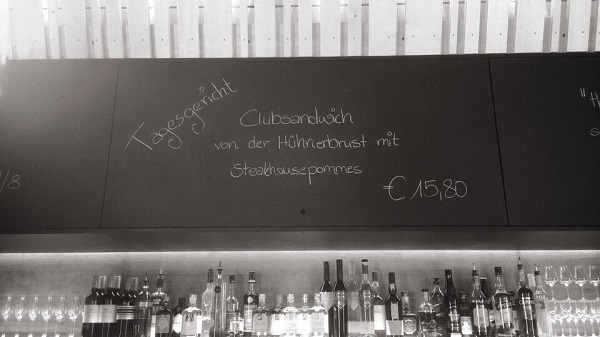 Tagesgericht
Clubsandwich
von der Hühnerbrust mit
Steakhousepommes
€ 15,80
1/8